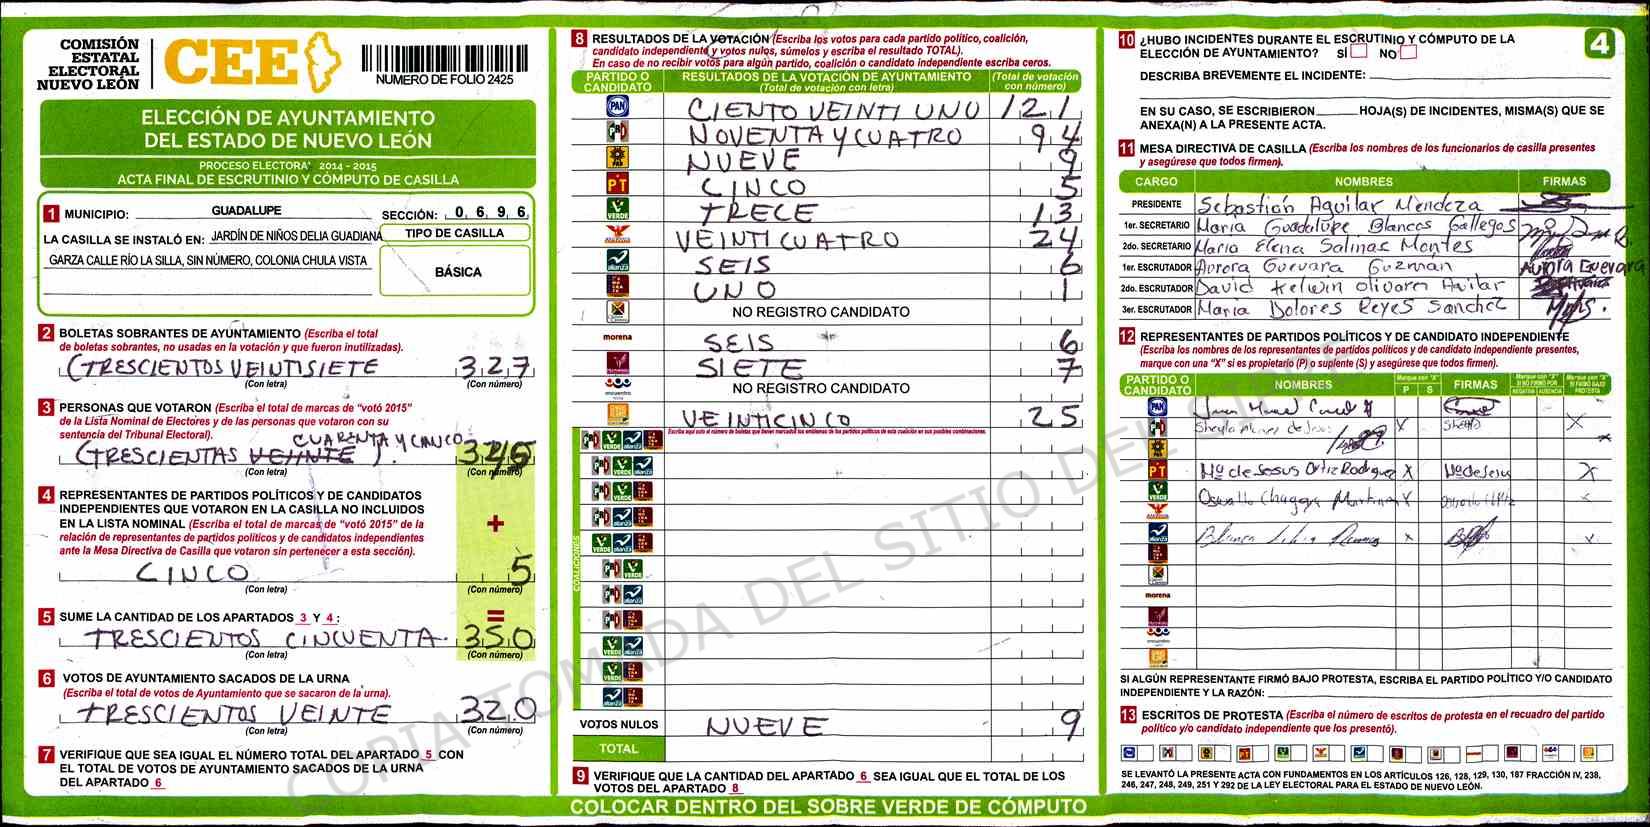 COMISIÓN
ESTATAL
ELECTORAL
NUEVO LEÓN
CEE
NUMERO DE FOLIO 2425
ELECCIÓN DE AYUNTAMIENTO
DEL ESTADO DE NUEVO LEÓN
PROCESO ELECTORAL 2014 - 2015
ACTA FINAL DE ESCRUTINIO Y CÓMPUTO DE CASILLA
1 MUNICIPIO: GUADALUPE SECCIÓN: 0 6 9 6
LA CASILLA SE INSTALÓ EN: JARDÍN DE NIÑOS DELIA GUADIANA
TIPO DE CASILLA
GARZA CALLE RÍO LA SILLA, SIN NÚMERO, COLONIA CHULA VISTA
BÁSICA
2 BOLETAS SOBRANTES DE AYUNTAMIENTO (Escriba el total
de boletas sobrantes, no usadas en la votación y que fueron inutilizadas).
(TRESCIENTOS VEINTISIETE 327
(Con letra) (Con número)
3 PERSONAS QUE VOTARON (Escriba el total de marcas de "votó 2015"
de la Lista Nominal de Electores y de las personas que votaron con su
sentencia del Tribunal Electoral).
CUARENTA Y CINCO
(TRESCIENTAS VEINTE ). 345
(Con letra) (Con número)
4 REPRESENTANTES DE PARTIDOS POLÍTICOS Y DE CANDIDATOS
INDEPENDIENTES QUE VOTARON EN LA CASILLA NO INCLUIDOS
EN LA LISTA NOMINAL (Escriba el total de marcas de "votó 2015" de la
relación de representantes de partidos políticos y de candidatos independientes
ante la Mesa Directiva de Casilla que votaron sin pertenecer a esta sección).
+
CINCO 5
(Con letra) (Con número)
=
5 SUME LA CANTIDAD DE LOS APARTADOS 3 Y 4 :
TRESCIENTOS CINCUENTA. 350
(Con letra) (Con número)
6 VOTOS DE AYUNTAMIENTO SACADOS DE LA URNA
(Escriba el total de votos de Ayuntamiento que se sacaron de la urna).
TRESCIENTOS VEINTE 320
(Con letra) (Con número)
7 VERIFIQUE QUE SEA IGUAL EL NÚMERO TOTAL DEL APARTADO 5 CON
EL TOTAL DE VOTOS DE AYUNTAMIENTO SACADOS DE LA URNA
DEL APARTADO 6
8 RESULTADOS DE LA VOTACIÓN (Escriba los votos para cada partido político, coalición,
candidato independiente y votos nulos, súmelos y escriba el resultado TOTAL).
En caso de no recibir votos para algún partido, coalición o candidato independiente escriba ceros.
PARTIDO O CANDIDATO RESULTADOS DE LA VOTACIÓN DE AYUNTAMIENTO (Total de votación con letra) (Total de votación con número)
PAN CIENTO VEINTI UNO 121
PRI NOVENTA Y CUATRO 94
PRD NUEVE 9
PT CINCO 5
VERDE TRECE 13
VEINTICUATRO 24
alianza SEIS 6
UNO 1
NO REGISTRO CANDIDATO
morena SEIS 6
SIETE 7
encuentro NO REGISTRO CANDIDATO
VEINTICINCO 25
Escriba aquí solo el número de boletas que tienen marcados los emblemas de los partidos políticos de esta coalición en sus posibles combinaciones.
COALICIONES
VOTOS NULOS NUEVE 9
TOTAL
9 VERIFIQUE QUE LA CANTIDAD DEL APARTADO 6 SEA IGUAL QUE EL TOTAL DE LOS
VOTOS DEL APARTADO 8
10 ¿HUBO INCIDENTES DURANTE EL ESCRUTINIO Y CÓMPUTO DE LA
ELECCIÓN DE AYUNTAMIENTO? SÍ NO
4
DESCRIBA BREVEMENTE EL INCIDENTE:
EN SU CASO, SE ESCRIBIERON HOJA(S) DE INCIDENTES, MISMA(S) QUE SE
ANEXA(N) A LA PRESENTE ACTA.
11 MESA DIRECTIVA DE CASILLA (Escriba los nombres de los funcionarios de casilla presentes
y asegúrese que todos firmen).
CARGO NOMBRES FIRMAS
PRESIDENTE Sebastián Aguilar Mendoza
1er. SECRETARIO Maria Guadalupe Blancos Gallegos
2do. SECRETARIO Maria Elena Salinas Montes
1er. ESCRUTADOR Aurora Guevara Guzmán Aurora Guevara
2do. ESCRUTADOR David Kelwin Olivares Aguilar
3er. ESCRUTADOR Maria Dolores Reyes Sanchez
12 REPRESENTANTES DE PARTIDOS POLÍTICOS Y DE CANDIDATO INDEPENDIENTE
(Escriba los nombres de los representantes de partidos políticos y de candidato independiente presentes,
marque con una "X" si es propietario (P) o suplente (S) y asegúrese que todos firmen).
PARTIDO O CANDIDATO NOMBRES Marque con "X" P S FIRMAS Marque con "X" SI NO FIRMÓ POR NEGATIVA AUSENCIA Marque con "X" SI FIRMÓ BAJO PROTESTA
PAN
Sheyla X Sheyla X
X
PT Mª de Jesus Ortiz Rodriguez X Mª de Jesus X
VERDE Oswaldo Martinez X X
alianza Blanca X X
morena
encuentro
SI ALGÚN REPRESENTANTE FIRMÓ BAJO PROTESTA, ESCRIBA EL PARTIDO POLÍTICO Y/O CANDIDATO
INDEPENDIENTE Y LA RAZÓN:
13 ESCRITOS DE PROTESTA (Escriba el número de escritos de protesta en el recuadro del partido
político y/o candidato independiente que los presentó).
SE LEVANTÓ LA PRESENTE ACTA CON FUNDAMENTOS EN LOS ARTÍCULOS 126, 128, 129, 130, 187 FRACCIÓN IV, 238,
246, 247, 248, 249, 251 Y 292 DE LA LEY ELECTORAL PARA EL ESTADO DE NUEVO LEÓN.
COLOCAR DENTRO DEL SOBRE VERDE DE CÓMPUTO
COPIA TOMADA DEL SITIO DEL